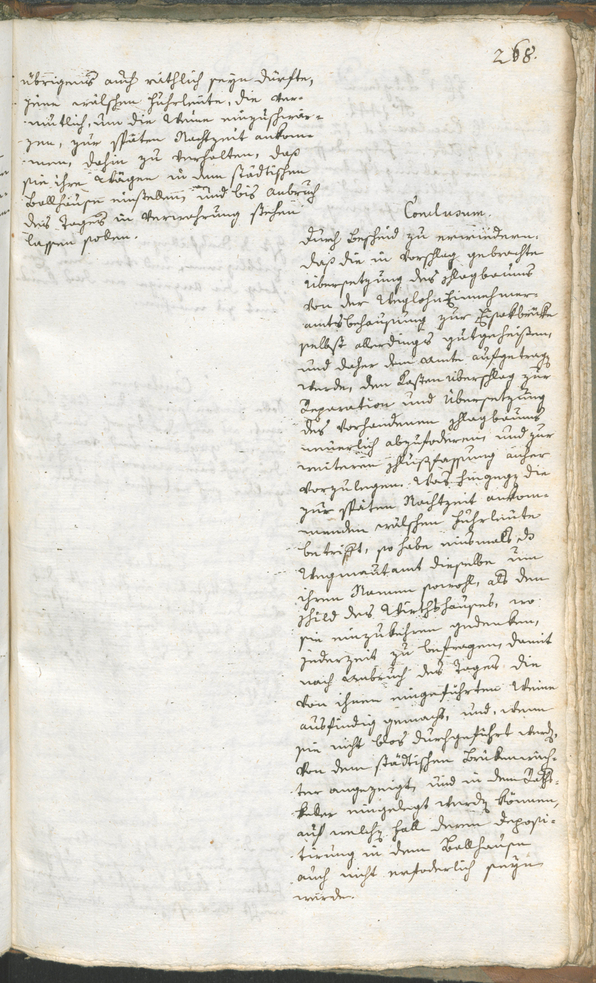 268.
übrigens auch räthlich seyn dürfte,
jene wälschen Fuhrleute, die ver-
muthlich, um die Weine einzuschwär-
zen, zur späten Nachtzeit ankom-
men, dahin zu verhalten, daß
sie ihre Wägen in dem städtischen
Ballhause einstellen, und bis Anbruch
des Tages in Verwahrung stehen
lassen sollen.
Conclusum.
durch Bescheid zu erwiedern:
daß die in Vorschlag gebrachte
Übersetzung des Schlagbaums
von der Weglohn Einnehmer-
amtsbehausung zur Eisakbrücke
selbst allerdings gutgeheißen,
und daher dem Amte aufgetragen
werde, den Kosten Überschlag zur
Reparation und Übersetzung
des vorhandenen Schlagbaums
neuerlich abzufodern und zur
weiteren Schlußfassung anher
vorzulegen. Was hingegen die
zur späten Nachtzeit ankom-
menden wälschen Fuhrleute
betrifft, so habe niemals das
Wegmautamt dieselbe um
ihren Namen sowohl, als den
Schild des Wirthshauses, wo
sie einzukehren gedenken,
jederzeit zu befragen, damit
nach Anbruch des Tages die
von ihnen eingeführten Weine
ausfindig gemacht, und, wenn
sie nicht blos durchgeführt werden,
von dem städtischen Brückenwäch-
ter angezeigt, und in dem
keller eingelegt werden können,
auf welchen Fall deren deposi-
tirung in dem Ballhause
auch nicht erfoderlich seyn
würde.